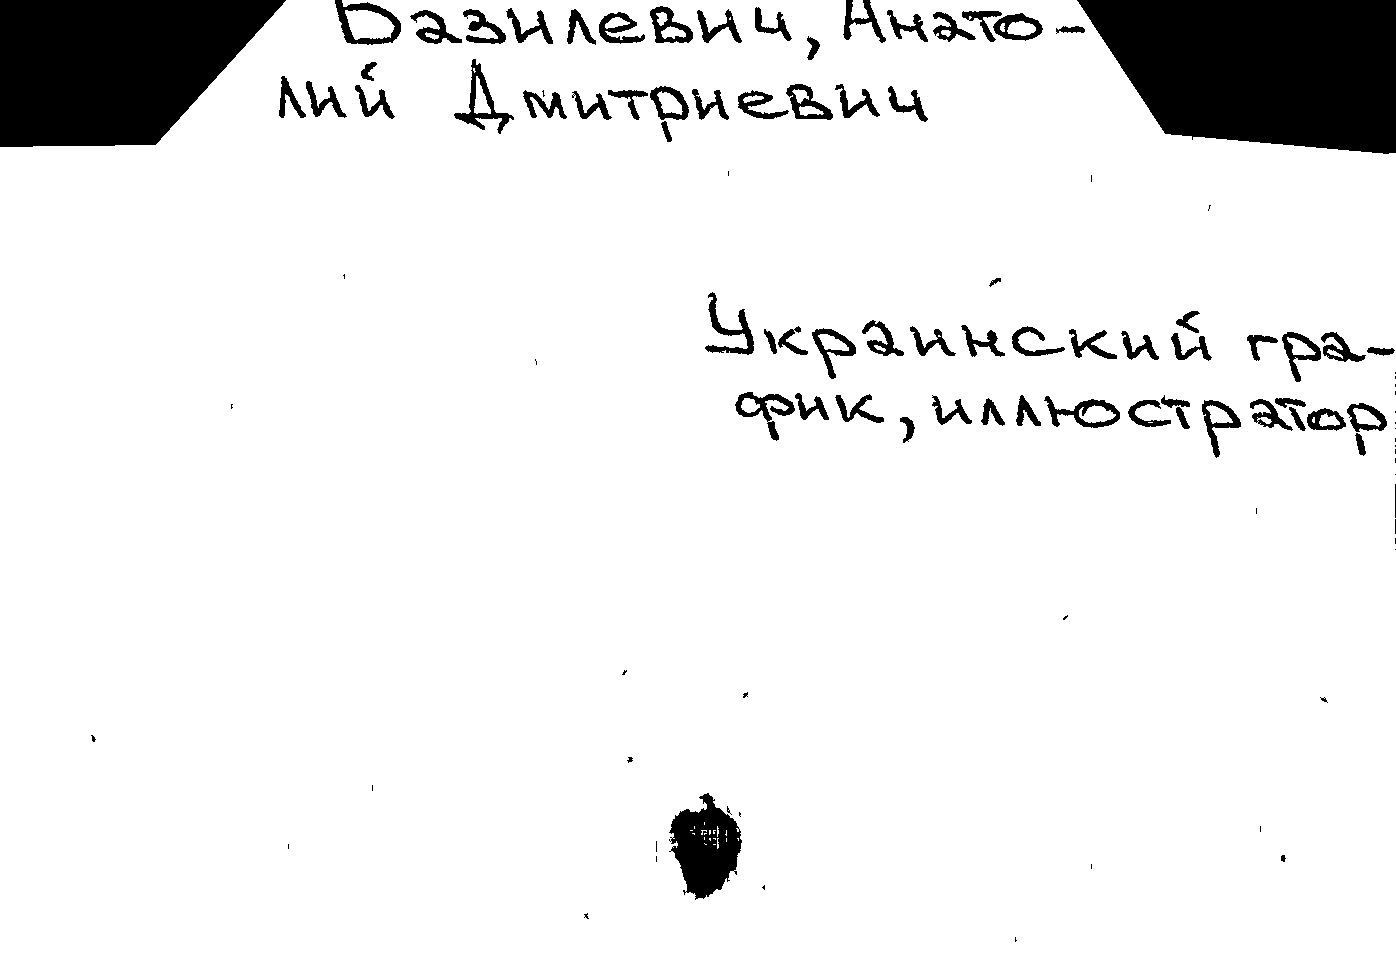 Базилевич, Анато-
лий Дмитриевич
Украинский гра-
фик, иллюстратор